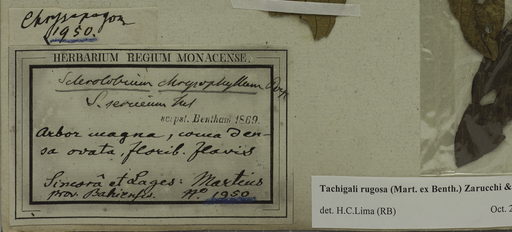 Chrysapogon
1950.
HERBARIUM REGIUM MONACENSE.
Sclerolobium chrysophyllum Pöpp
S. sericeum
script. Bentham 1869.
Arbor magna, coma den-
sa ovata, florib. flavis
Sincorá et Lages: Martius
prov. Bahiensis. No. 1950
Tachigali rugosa (Mart. ex Benth.) Zarucchi &
det. H.C.Lima (RB)
Oct. 2